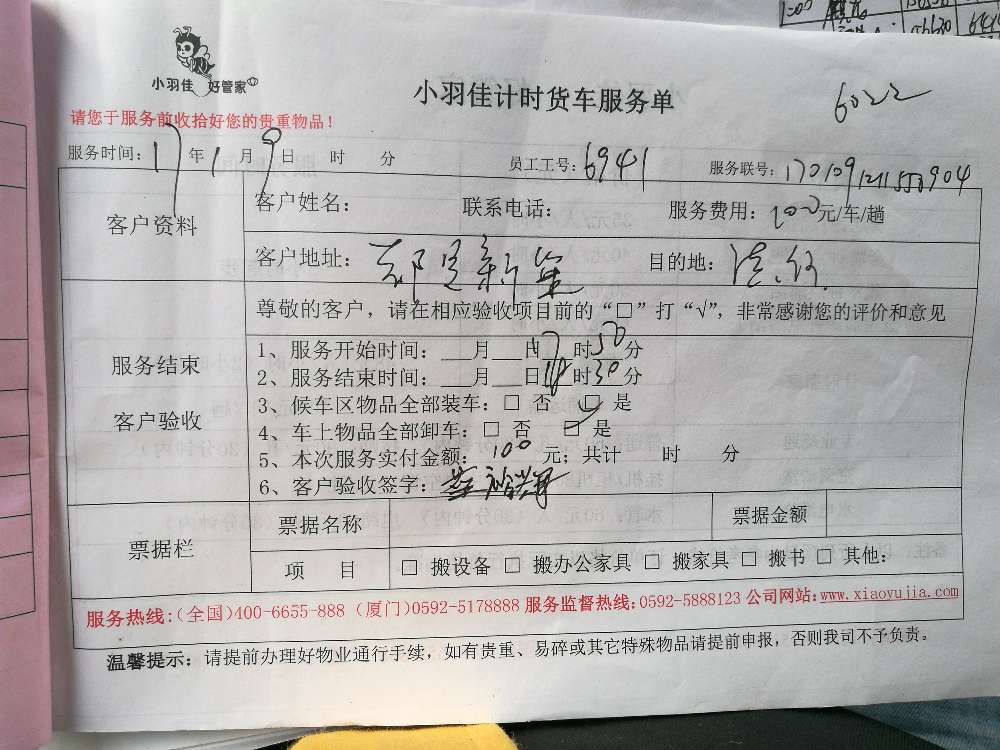 小羽佳 好管家
小羽佳计时货车服务单
6022
请您于服务前收拾好您的贵重物品！
服务时间：17年1月9日 时 分 员工工号：6941 服务联号：1701091211550904
客户资料
客户姓名： 联系电话： 服务费用：100元/车/趟
客户地址： 目的地：
尊敬的客户，请在相应验收项目前的“□”打“√”，非常感谢您的评价和意见
服务结束
客户验收
1、服务开始时间：___月___日17时50分
2、服务结束时间：___月___日18时30分
3、候车区物品全部装车：□ 否 ☑ 是
4、车上物品全部卸车：□ 否 ☑ 是
5、本次服务实付金额：100元；共计 时 分
6、客户验收签字：
票据栏
票据名称 票据金额
项 目 □ 搬设备 □ 搬办公家具 □ 搬家具 □ 搬书 □ 其他：
服务热线：（全国）400-6655-888（厦门）0592-5178888 服务监督热线：0592-5888123 公司网站：www.xiaoyujia.com
温馨提示：请提前办理好物业通行手续，如有贵重、易碎或其它特殊物品请提前申报，否则我司不予负责。